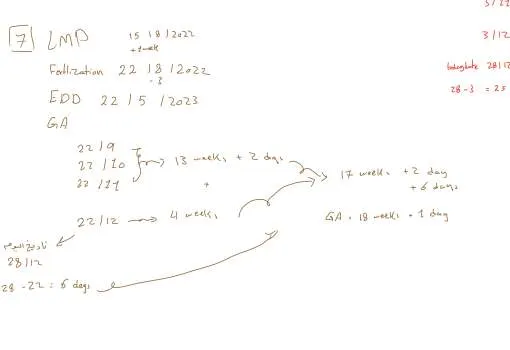 7 LMP 15 / 8 / 2022
+1 week
Fertlization 22 / 8 / 2022
-3
EDD 22 / 5 / 2023
GA
22 / 9
22 / 10
22 / 11
13 weeks + 2 days
+
22 / 12 → 4 weeks
17 weeks + 2 day
+ 6 days
GA = 18 weeks + 1 day
تاريخ اليوم
28 / 12
28 - 22 = 6 days
3 / 12
28 / 12
28 - 3 = 25